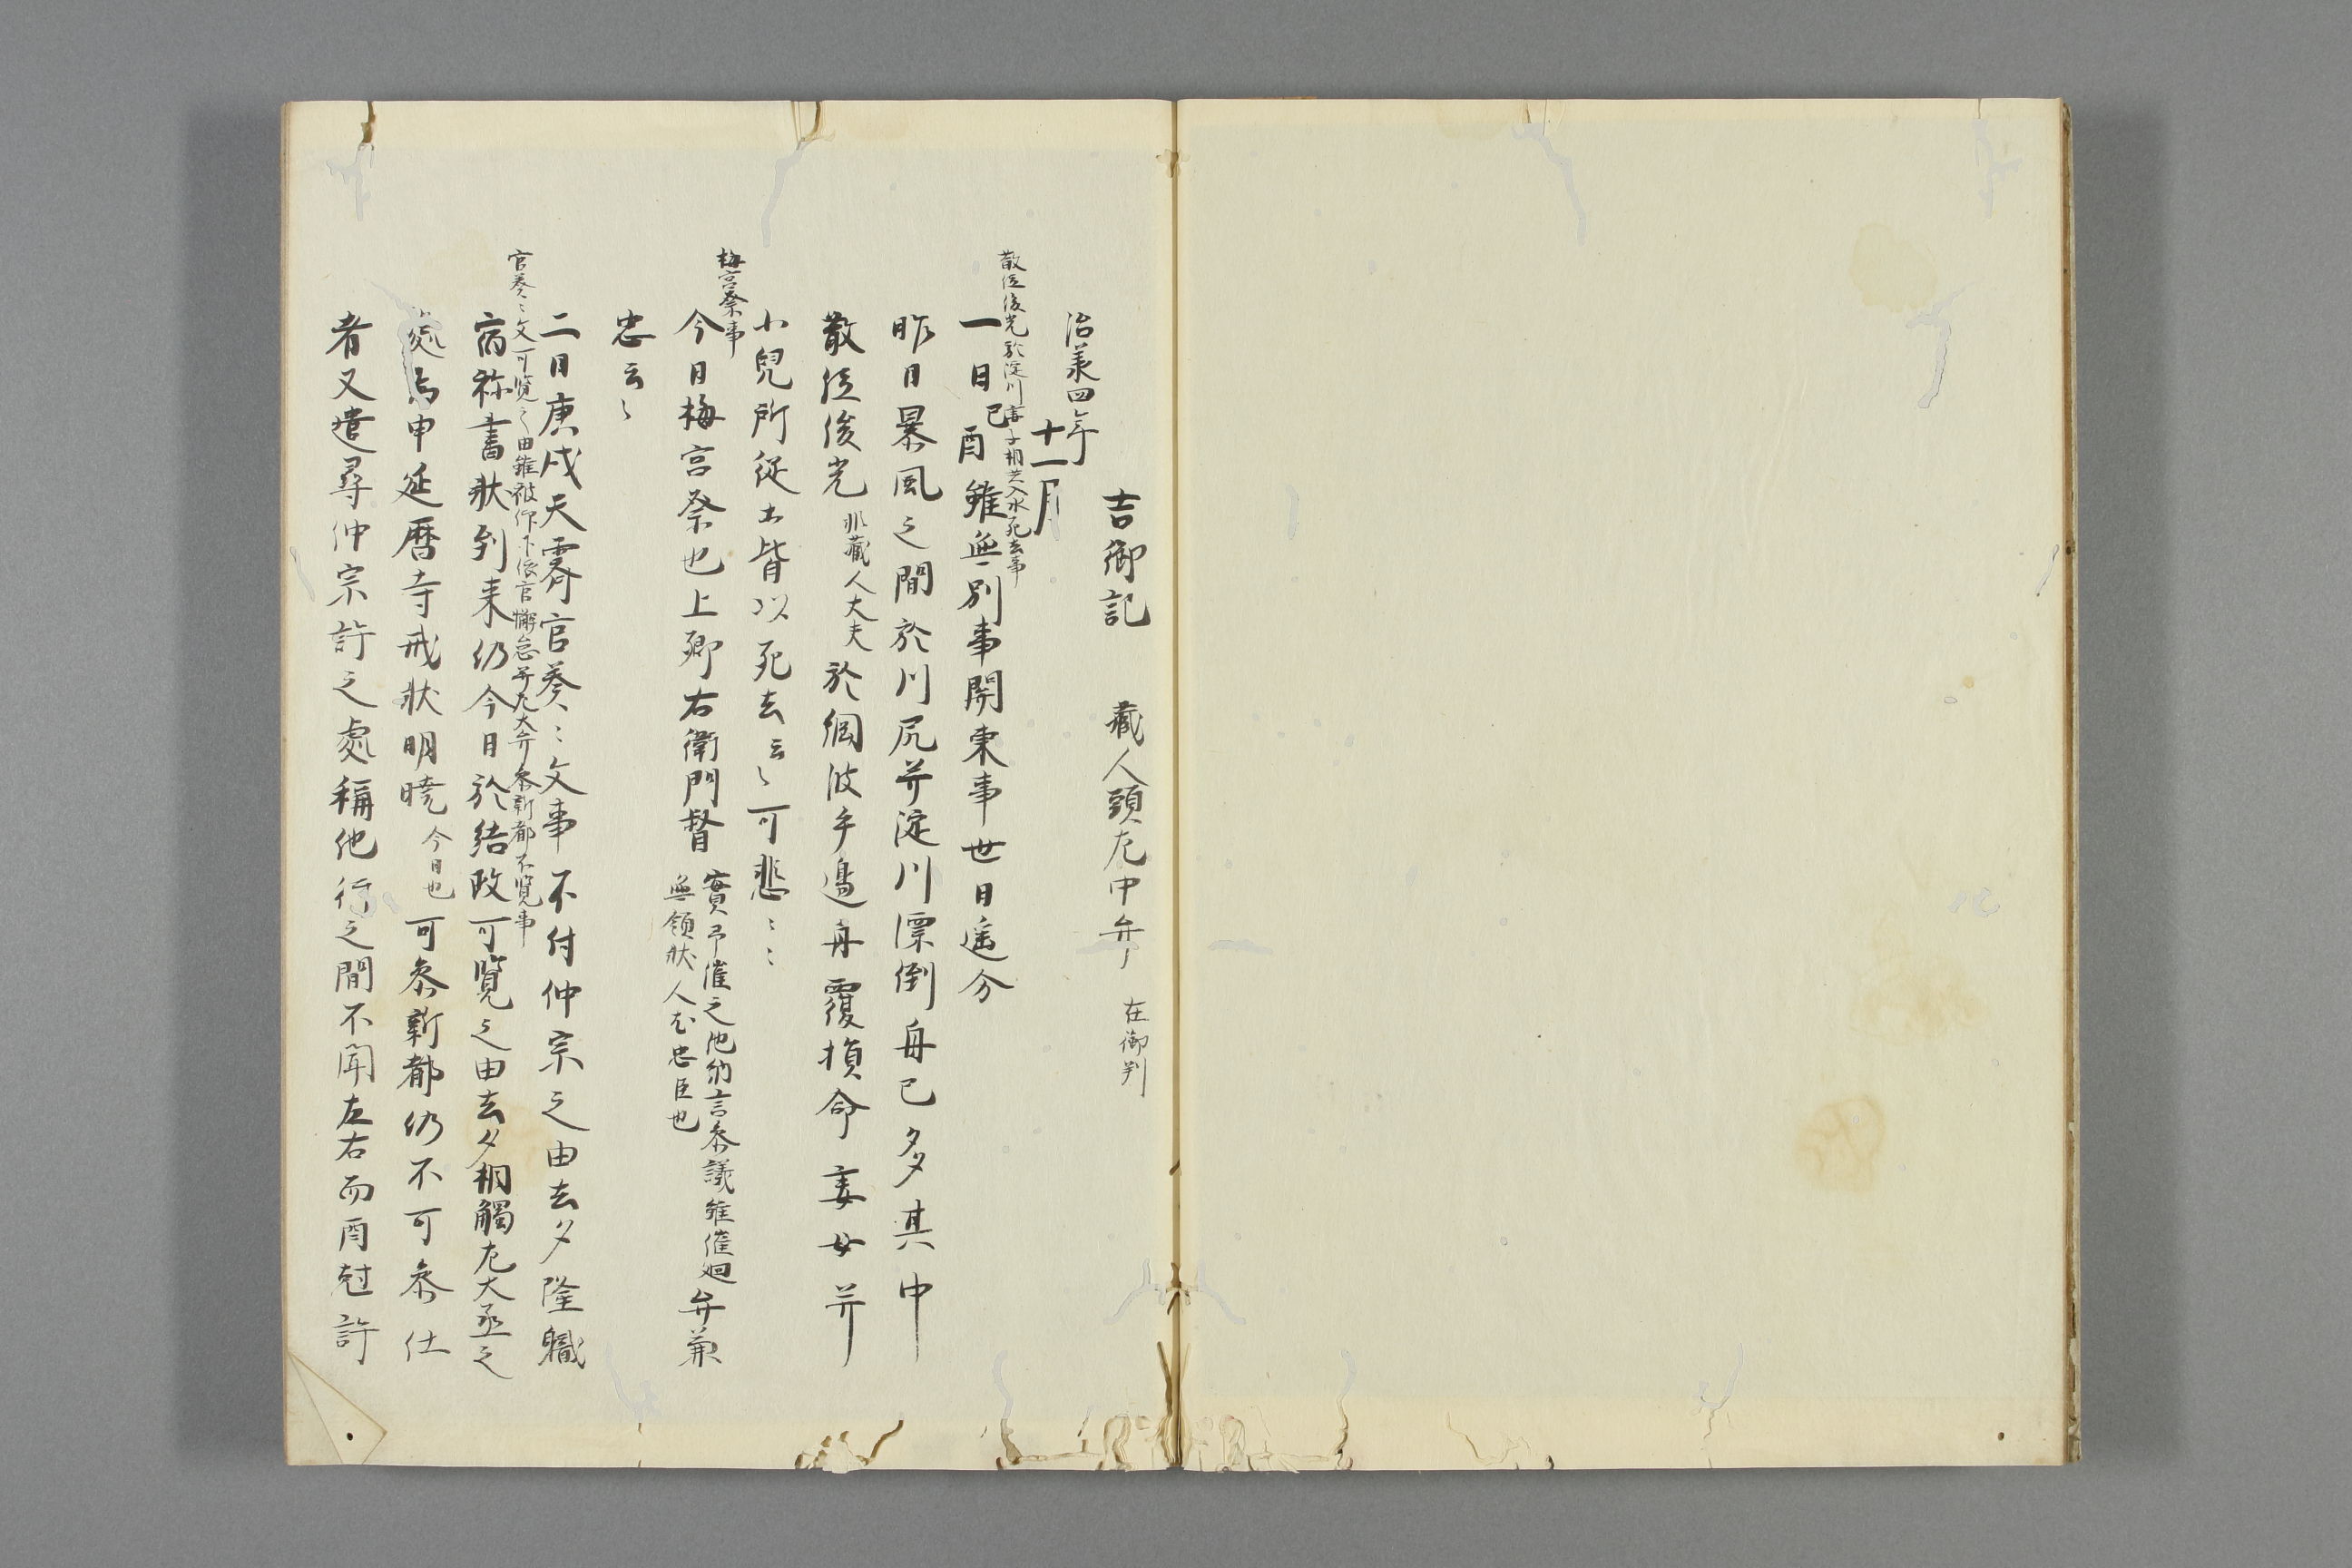 吉御記　蔵人頭左中弁　在御判
治承四年
十一月
散位俊光於淀川妻子相共入水死去事
一日己酉雖無別事関東事世日遥分
昨日暴風之間於川尻并淀川漂倒舟已多其中
散位俊光非蔵人大夫於綱波手辺舟覆損命妻母并
小兒所従等皆以死去云々可悲〻〻
梅宮祭事
今日梅宮祭也上卿右衛門督實予催之他納言参議雖催廻無領状人至忠臣也弁兼
忠云々
二日庚戌天霽官奏〻文事不付仲宗之由去夕隆職
官奏〻文可覧之由雖被仰下依官懈怠并左大弁参新都不覧事
宿祢書状到来仍今日於結政可覧之由去夕相觸左大丞之
處与申延暦寺戒状明暁今日也可参新都仍不可参仕
者又遣尋仲宗許之處稱他行之間不聞左右而酉尅許